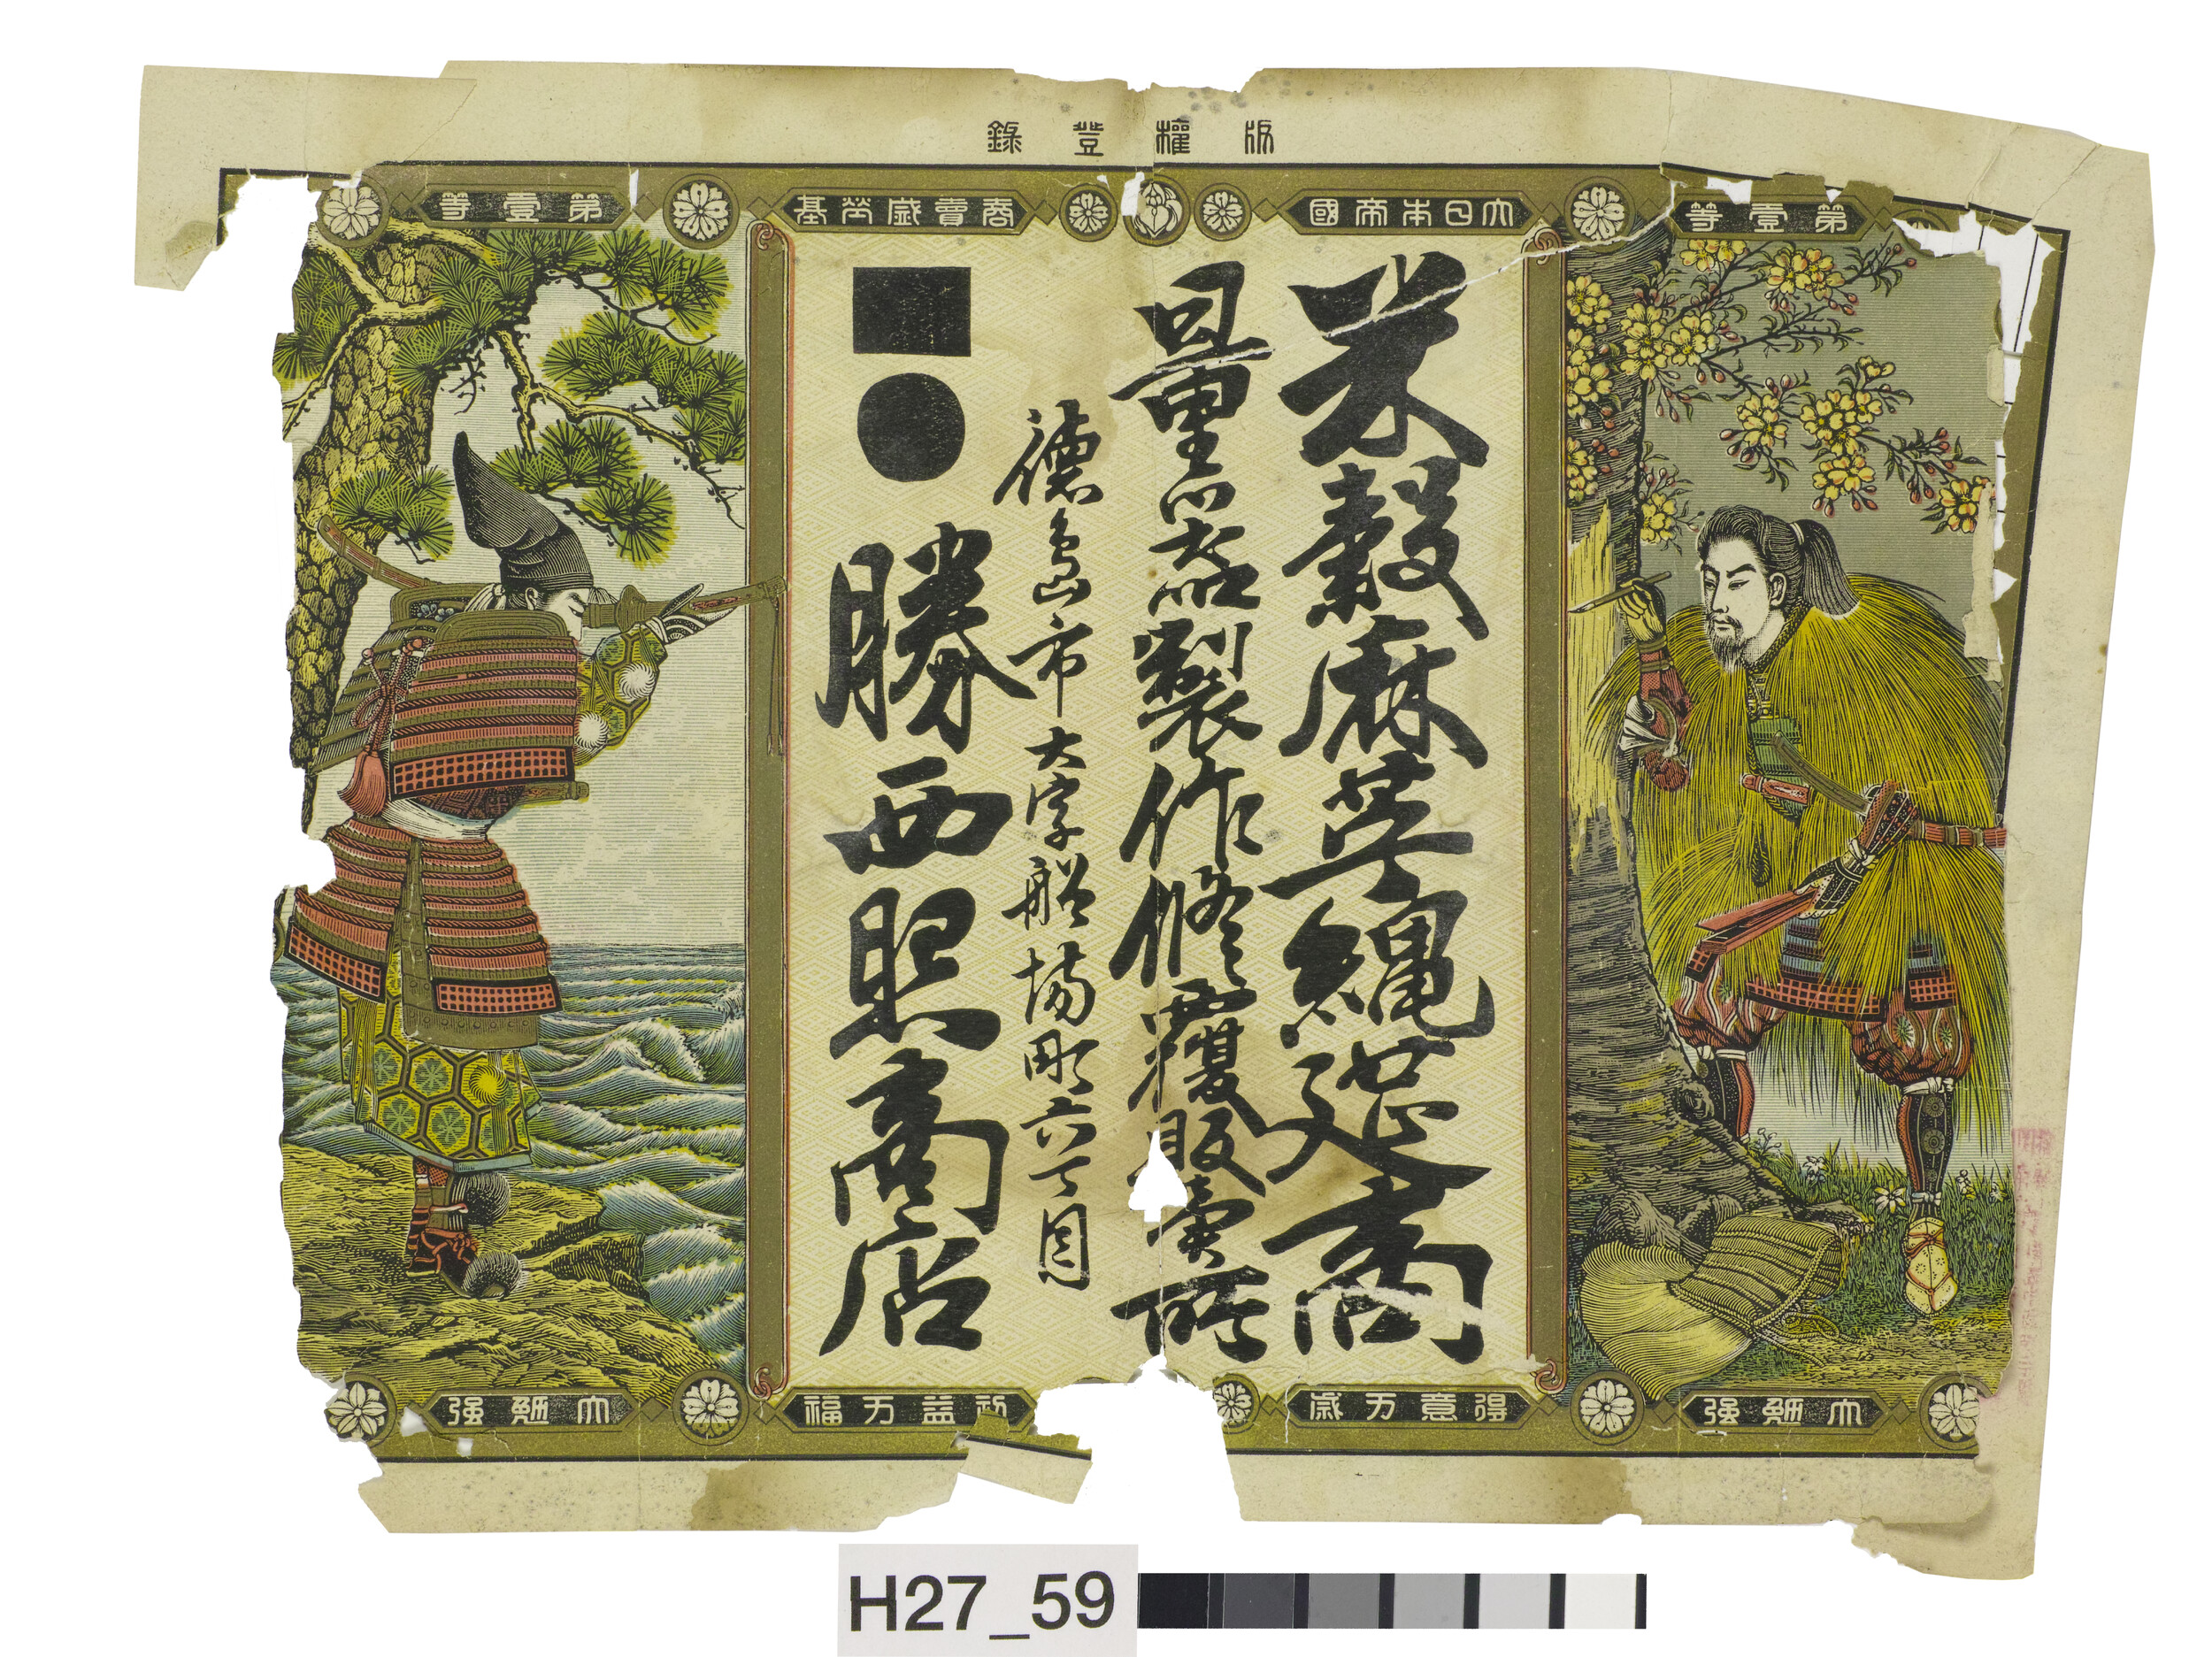 版權登錄
第壹等
大日本帝國
商賣盛栄基
第壹等
米穀麻苧縄莚商
量器製作修覆販賣所
徳島市大字船場町六丁目
勝西熙商店
大勉强
得意万歳
益万福
大勉强
H27_59